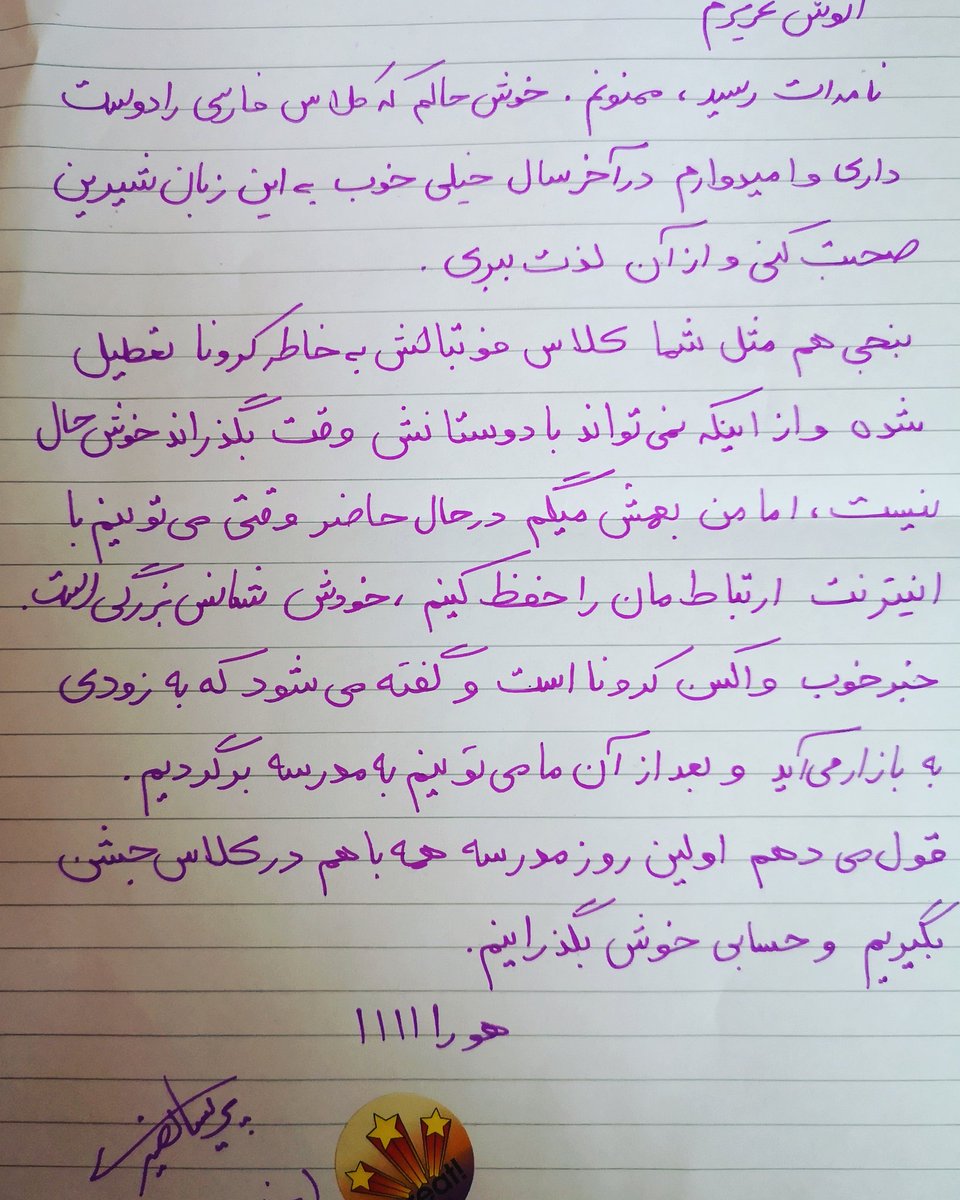 عزیزم
نامه‌ات رسید، ممنونم. خوش حالم که کلاس فارسی را دوست
داری و امیدوارم در آخر سال خیلی خوب به این زبان شیرین
صحبت کنی و از آن لذت ببری.
بنجی هم مثل شما کلاس فوتبالش به خاطر کرونا تعطیل
شده و از اینکه نمی‌تواند با دوستانش وقت بگذراند خوش حال
نیست، اما من بهش میگم در حال حاضر وقتی می‌تونیم با
اینترنت ارتباط مان را حفظ کنیم، خودش شانس بزرگی است.
خبر خوب واکسن کرونا است و گفته می‌شود که به زودی
به بازار می‌آید و بعد از آن ما می‌تونیم به مدرسه برگردیم.
قول می‌دهم اولین روز مدرسه همه با هم در کلاس جشن
بگیریم و حسابی خوش بگذرانیم.
هورااااا